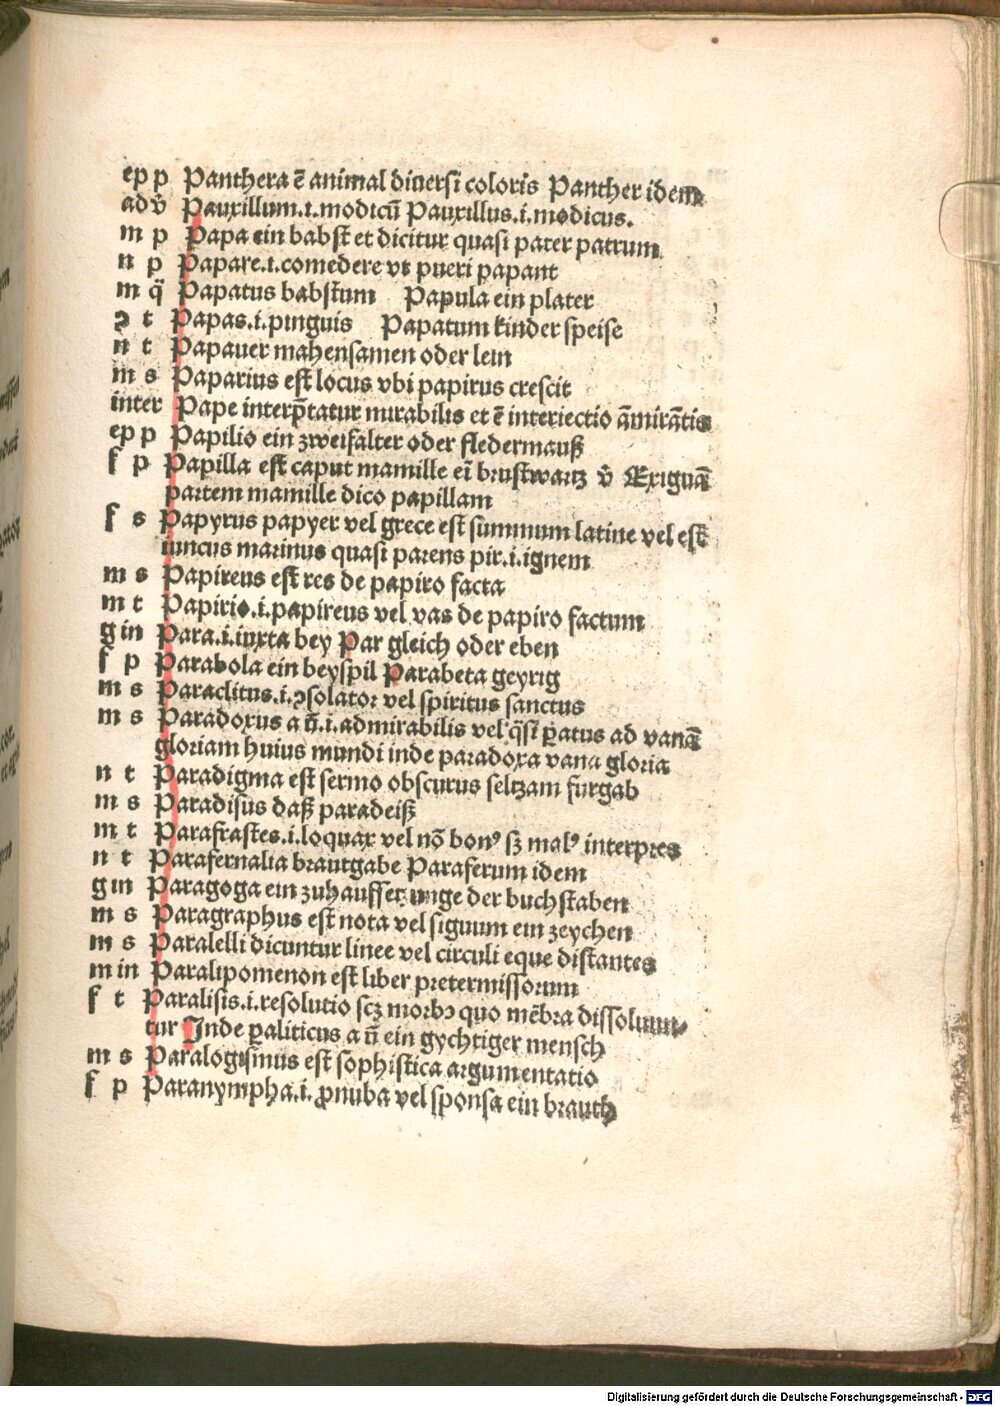 ep p Panthera ē animal diuersi coloris Panther idem
adv̄ Pauxillum.i.modicū Pauxillus.i.modicus.
m p Papa ein babst et dicitur quasi pater patrum
n p Papare.i.comedere vt pueri papant
m q̄ Papatus babstum Papula ein plater
ꝛ t Papas.i.pinguis Papatum kinder speise
n t Papauer mahensamen oder lein
m s Paparius est locus vbi papirus crescit
inter Pape interp̄tatur mirabilis et ē interiectio āmirātis
ep p Papilio ein zweifalter oder fledermauß
f p Papilla est caput mamille eī brustwartz v̄ Exiguā
partem mamille dico papillam
f s Papyrus papyer vel grece est summum latine vel est
iuncus marinus quasi parens pir.i.ignem
m s Papireus est res de papiro facta
m t Papirio.i.papireus vel vas de papiro factum
g in Para.i.iuxta bey Par gleich oder eben
f p Parabola ein beyspil Parabeta geyrig
m s Paraclitus.i.ꝯsolator vel spiritus sanctus
m s Paradoxus a ū.i.admirabilis vel q̄si p̱atus ad vanā
gloriam huius mundi inde paradoxa vana gloria
n t Paradigma est sermo obscurus seltzam furgab
m s Paradisus daß paradeiß
m t Parafrastes.i.loquax vel nō bonꝰ sꝫ malꝰ interpres
n t Parafernalia brautgabe Paraferum idem
g in Paragoga ein zuhauffetzunge der buchstaben
m s Paragraphus est nota vel signum ein zeychen
m s Paralelli dicuntur linee vel circuli eque distantes
m in Paralipomenon est liber pretermissorum
f t Paralisis.i.resolutio scꝫ morbꝰ quo mēbra dissoluun⸗
tur Inde ꝑaliticus a ū ein gychtiger mensch
m s Paralogismus est sophistica argumentatio
f p Paranympha.i.ꝓnuba vel sponsa ein brauth
Digitalisierung gefördert durch die Deutsche Forschungsgemeinschaft - DFG